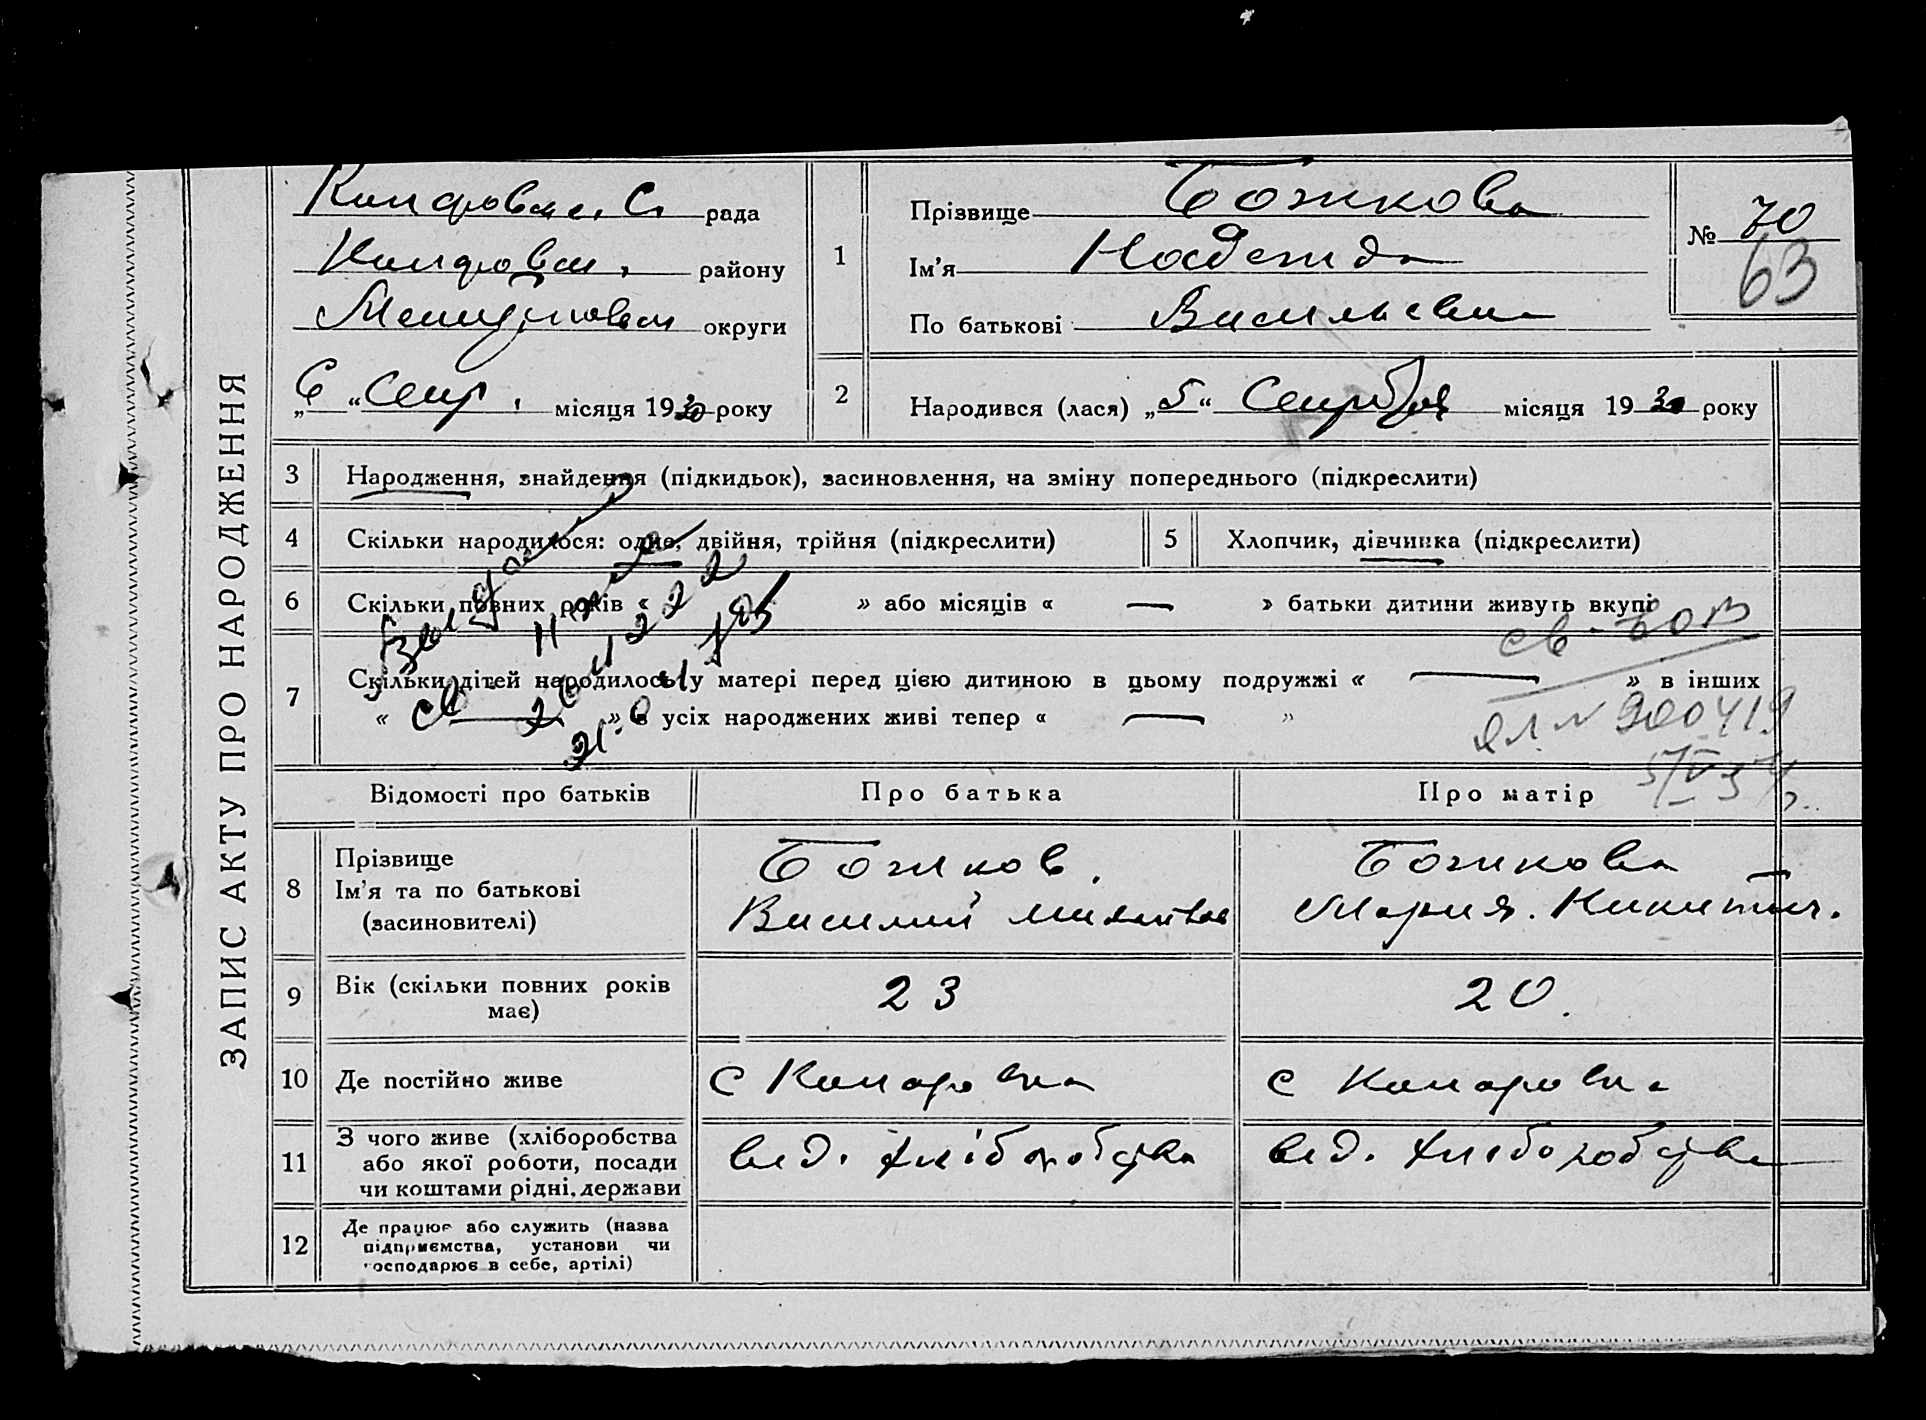 ЗАПИС АКТУ ПРО НАРОДЖЕННЯ
С. рада
району
округи
„6“ Сент. місяця 1930 року
1
Прізвище Божкова
Ім'я Надежда
По батькові Васильевна
№ 70
63
2
Народився (лася) „5“ Сентября місяця 1930 року
3
Народження, знайдення (підкидьок), засиновлення, на зміну попереднього (підкреслити)
4
Скільки народилося: одне, двійня, трійня (підкреслити)
5
Хлопчик, дівчинка (підкреслити)
6
Скільки повних років « » або місяців « — » батьки дитини живуть вкупі
7
Скільки дітей народилось у матері перед цією дитиною в цьому подружжі « — » в інших
« — » з усіх народжених живі тепер « — »
Відомості про батьків
Про батька
Про матір
8
Прізвище
Ім'я та по батькові
(засиновителі)
Божков.
Василий
Божкова
Мария. Никитич.
9
Вік (скільки повних років
має)
23
20.
10
Де постійно живе
с
с
11
З чого живе (хліборобства
або якої роботи, посади
чи коштами рідні, держави
від. хліборобства
від. хліборобства
12
Де працює або служить (назва
підприємства, установи чи
господарює в себе, артілі)